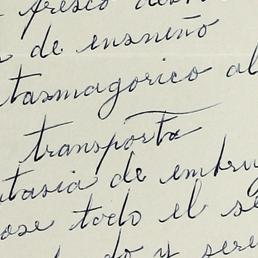 fresco
de ensueño
tasmagorico al
transporta
tasia de embru
ose todo el se
do y sere